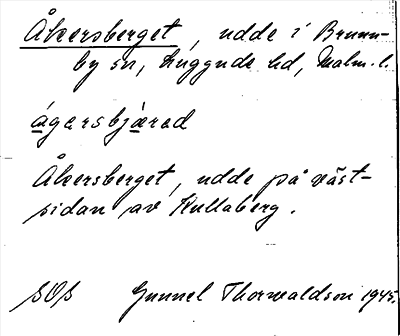 Åkersberget, udde i Brunn-
by sn, Luggude hd, Malm. l.
ágarsbjärad
Åkersberget, udde på väst-
sidan av Kullaberg.
SOS Gunnel Thorwaldson 1945.